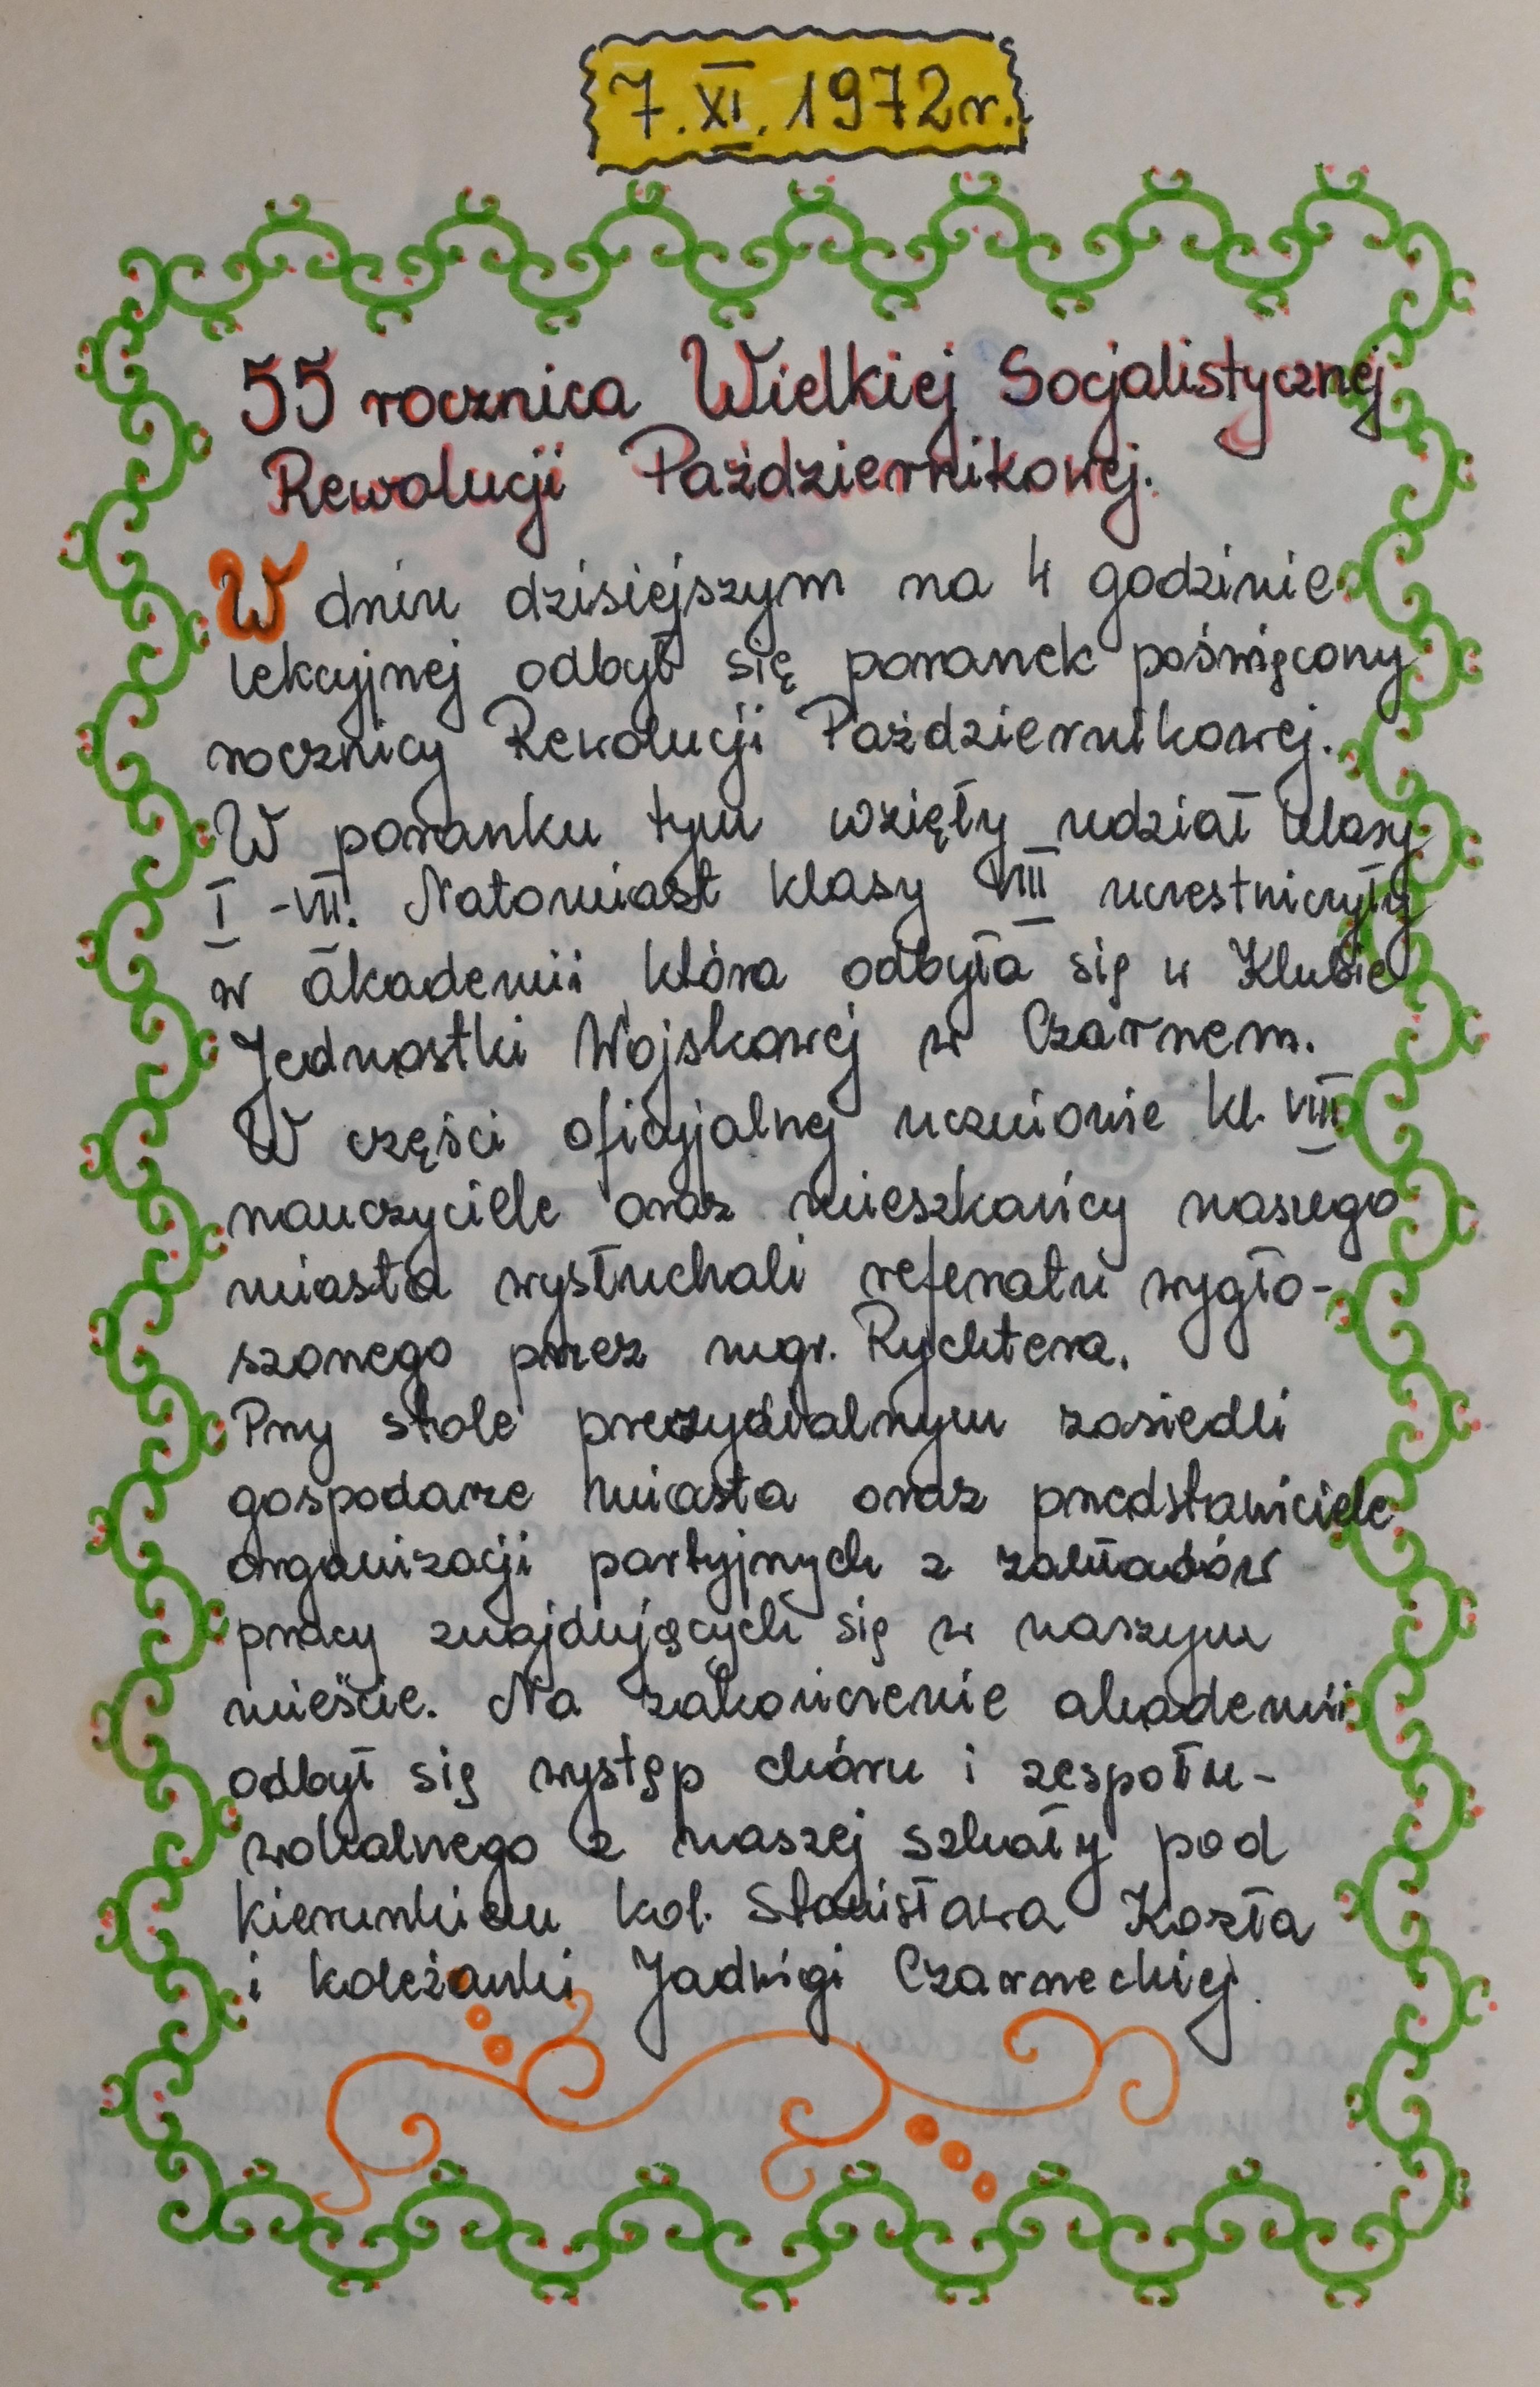 7. XI. 1972 r.
55 rocznica Wielkiej Socjalistycznej
Rewolucji Październikowej.
W dniu dzisiejszym na 4 godzinie
lekcyjnej odbył się poranek poświęcony
rocznicy Rewolucji Październikowej.
W poranku tym wzięły udział klasy
I - VII. Natomiast klasy VIII uczestniczyły
w akademii która odbyła się w Klubie
Jednostki Wojskowej w Czarnem.
W części oficyjalnej uczniowie kl. VIII
nauczyciele oraz mieszkańcy naszego
miasta wysłuchali referatu wygło-
szonego przez mgr. Rychtera.
Przy stole prezydialnym zasiedli
gospodarze miasta oraz przedstawiciele
organizacji partyjnych z zakładów
pracy znajdujących się w naszym
mieście. Na zakończenie akademii
odbył się występ chóru i zespołu-
wokalnego z naszej szkoły pod
kierunkiem kol. Stanisława Kozła
i koleżanki Jadwigi Czarneckiej.